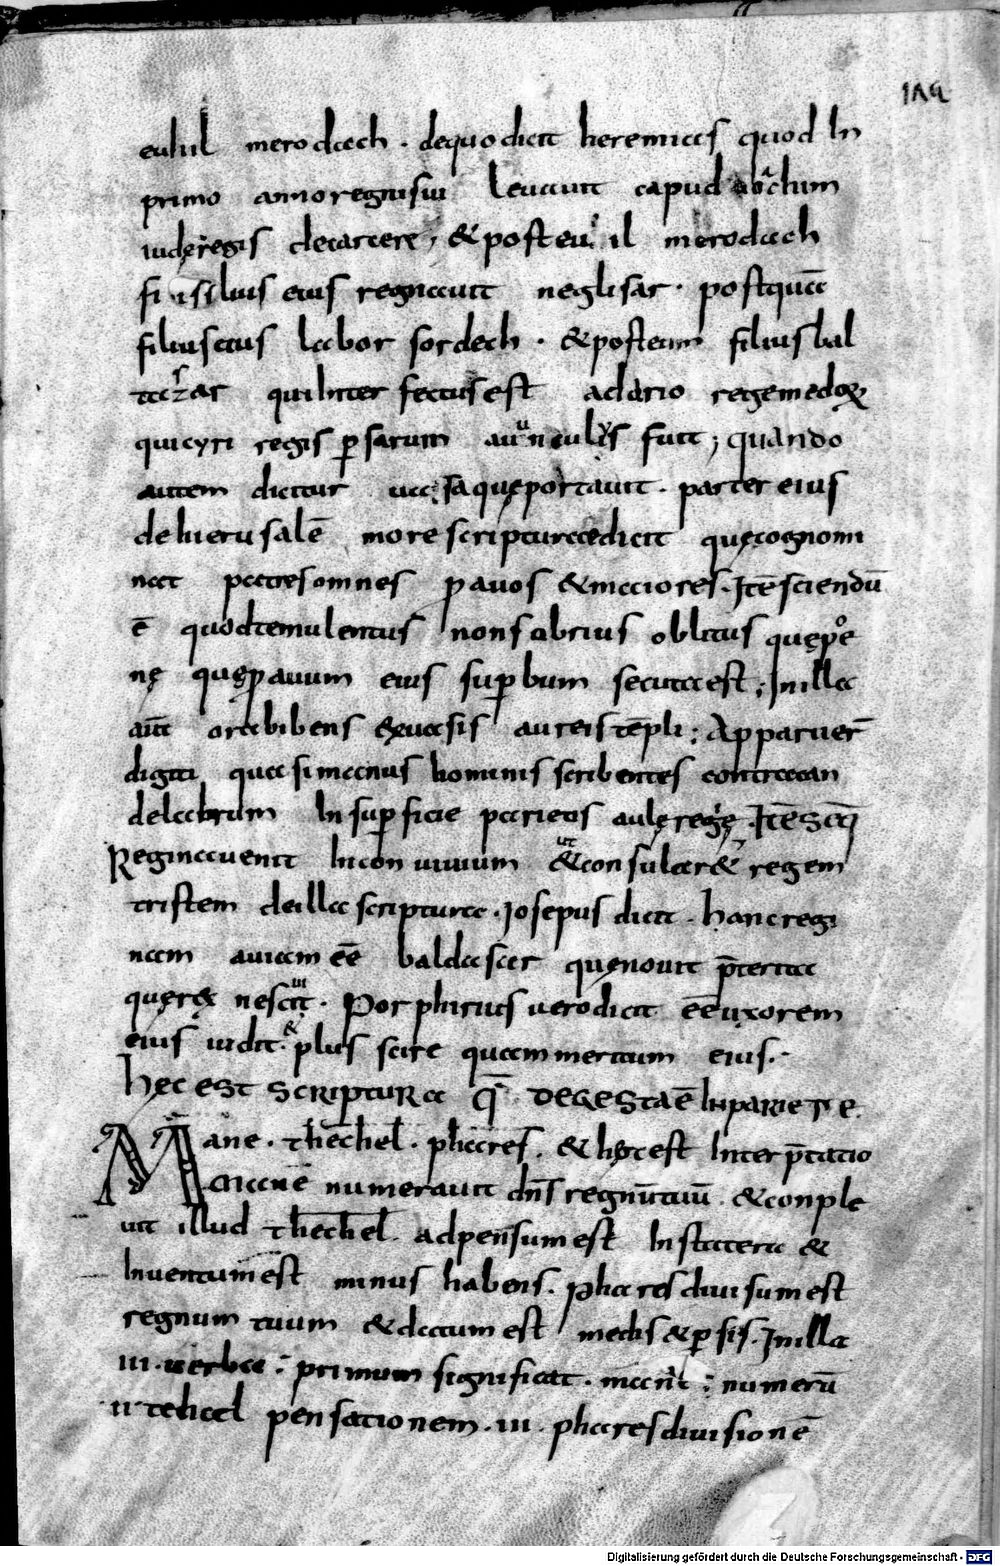 euhil merodach · dequodicit heremias quod In
primo anno regni sui leuauit capud
iudę regis decarcere, & posteu il merodach
filius eius regnauit neglisar · postquā
filius eius labor sordech · & posteum filius bal
tazar qui Interfectus est adario rege medoꝝ
qui cyri regis ꝑsarum auunculus fuit; quando
autem dicitur uasa quę portauit · pater eius
dehierusalē more scripturae dicit quę cognomi
nat patres omnes ꝓauos & maiores · Itē sciendū
ē quod temulentus non sobrius oblitus quę pe
nę quę ꝓauum eius suꝑbum secuta est; In illa
aūt ora bibens uasis aureis tēpli; Apparuer̄
digiti quasi manus hominis scribentes contra can
delabrum In suꝑficie parietis aulę regię · Itē
Regina uenit In conuiuium ut & consularet regem
tristem de illa scriptura · Iosepus dicit · hanc regi
nam auiam eē baldasar quę nouit p̄terita
quę rex nesciit · Porphirius uero dicit eē uxorem
eius uidit & plus scire quam meritum eius ·
hęc est scriptura q̄ degesta ē In pariete.
Mane · thechel · phares · & hęc est Interp̄tatio
Mane numerauit dn̄s regnū tuū · & conple
uit illud thechel · adpensum est In statera &
Inuentum est minus habens · phares diuisum est
regnum tuum & datum est medis & ꝑsis · In illa
III · uerba : primum significat · mane : numerū
II tehcel pensationem · III · phares diuisionē
Digitalisierung gefördert durch die Deutsche Forschungsgemeinschaft - DFG